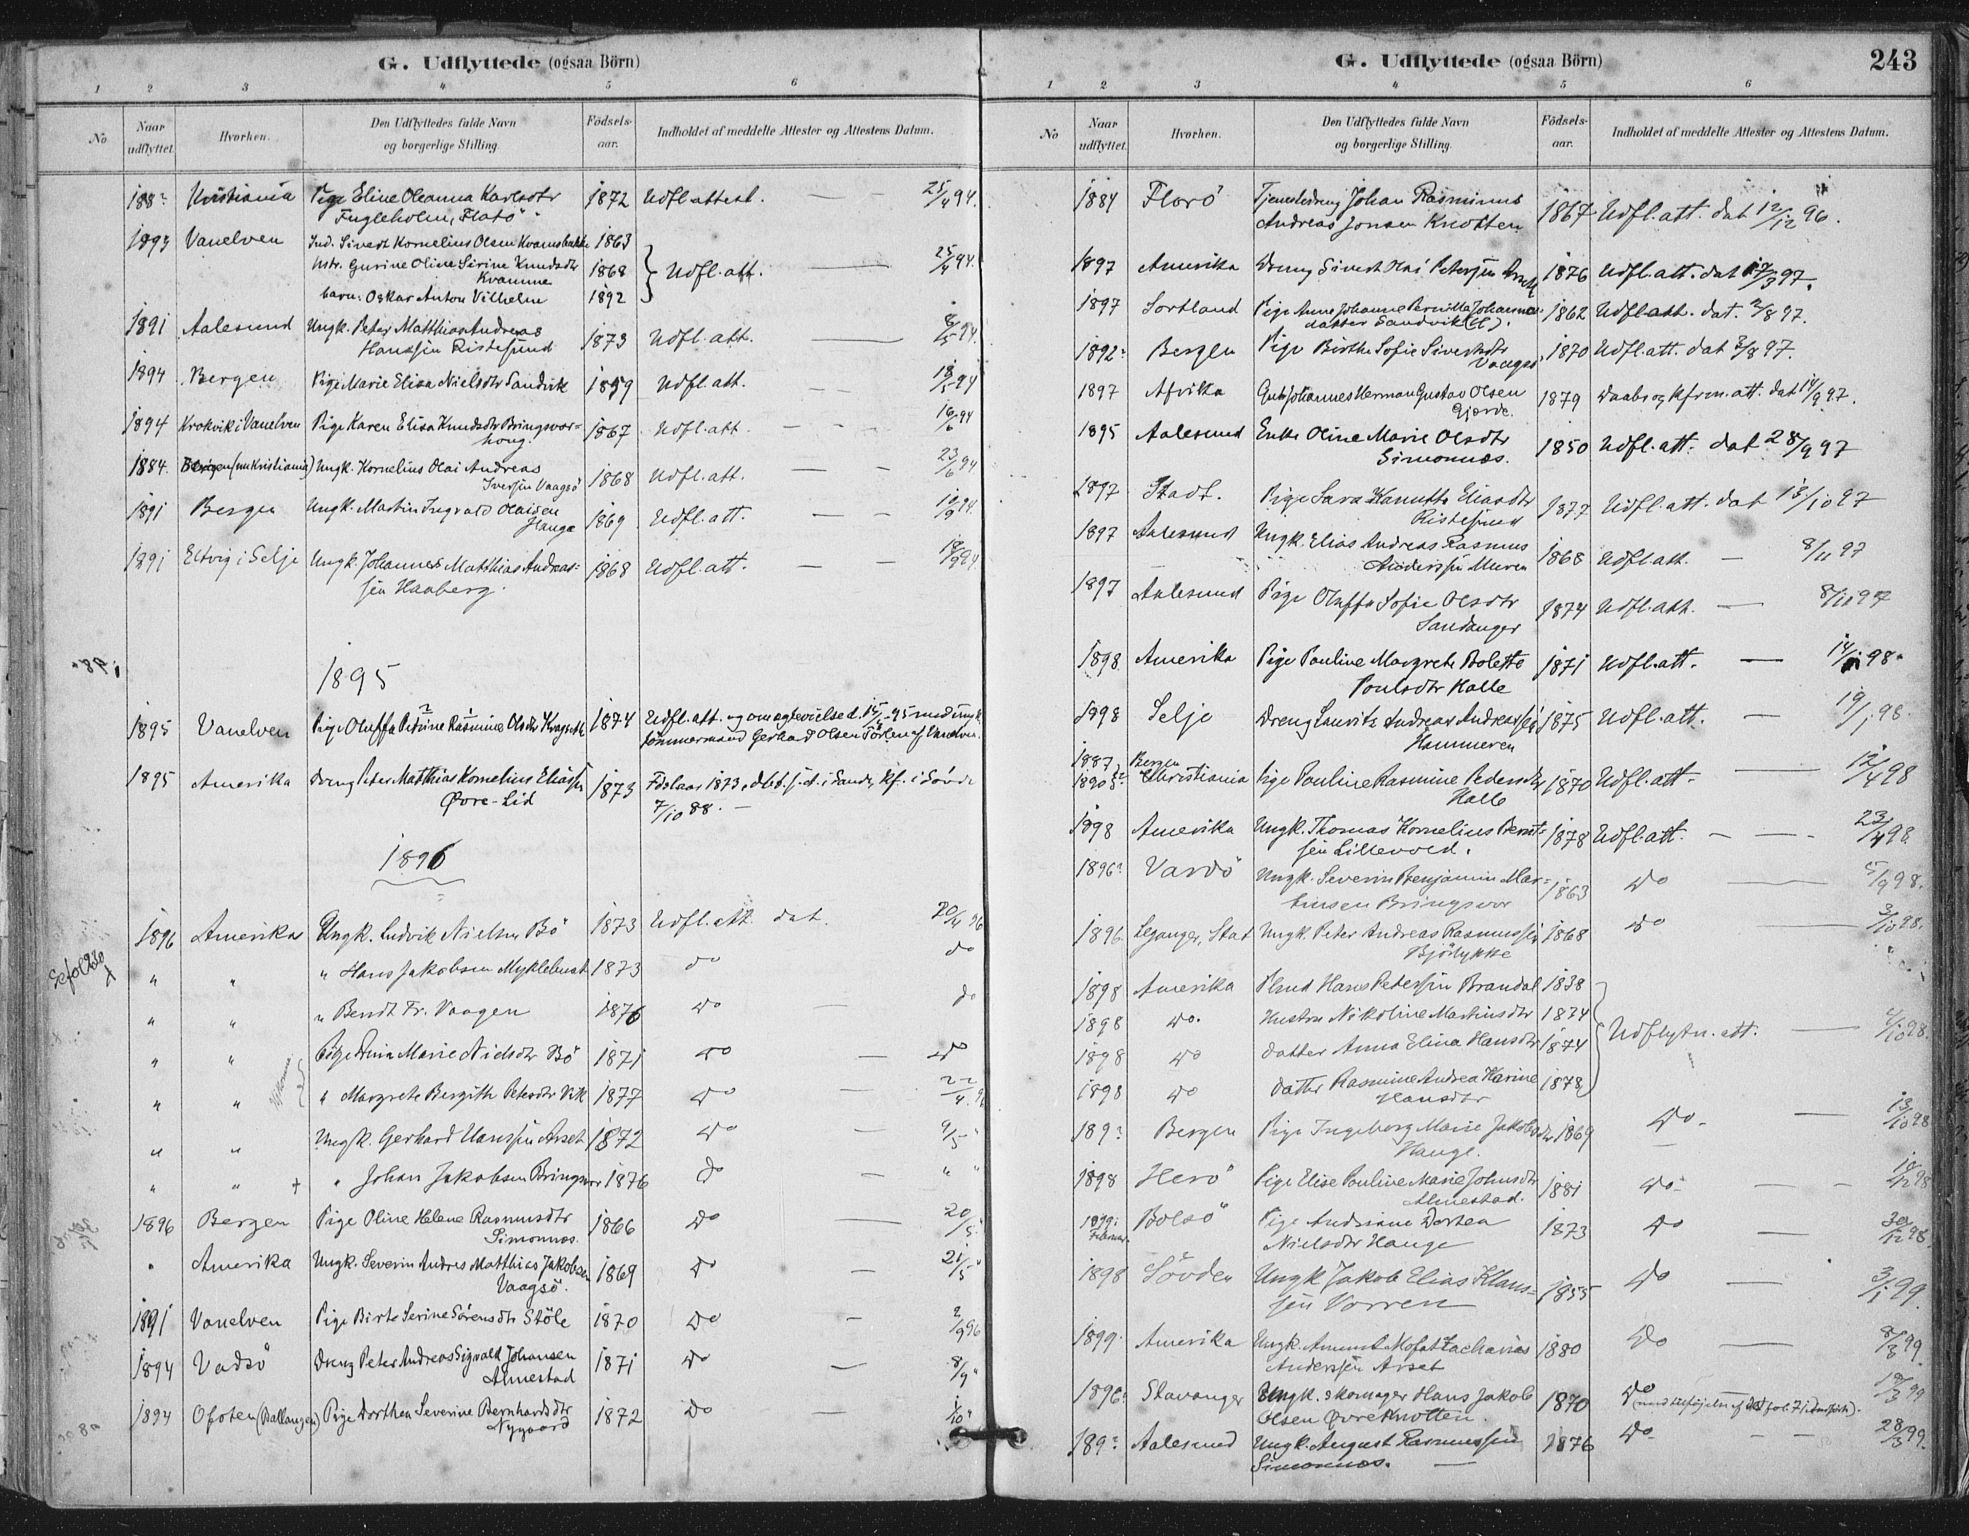 G. Udflyttede (ogsaa Börn)
1 2 3 4 5 6
No
Naar udflyttet
Hvorhen.
Den Udflyttedes fulde Navn og borgerlige Stilling.
Födsels-aar.
Indholdet af meddelte Attester og Attestens Datum.
188? Kristiania Pige Eline Oleanna Karlsdtr 1872 Udfl. attest. — — 25/4 94.
Fugleholm, Flatö
1893 Vanelven Ind. Sivert Kornelius Olsen Kvamsbakke 1863
Hstr. Gurine Oline Serine Knudsdtr 1868 Udfl. att. — 25/4 94.
Kvamme
barn: Oskar Anton Vilhelm 1892
1891 Aalesund Ungk. Peter Matthias Andreas
Hanssen Ristesund 1873 Udfl. att. — /5 94.
1894 Bergen Pige Marie Elisa Nielsdtr Sandvik 1859 Udfl. att. — 18/5 94
1894 Krokvik i Vanelven Pige Karen Elisa Knudsdtr Bringsvor= 1867 Udfl. att — - — 16/6 94
houg.
1884. Bergen (nu Kristiania) Ungk. Kornelius Olai Andreas
Iversen Vaagsö 1868 Udfl. att. — — 23/6 94
1891 Bergen Ungk. Martin Ingvald Olaisen
Hauge 1869 Udfl. att. — — 12/9 94.
1891 Eltvig i Selje Ungk. Johannes Matthias Andreas= 1868 Udfl. att. — — 18/9 94
sen Haaberg.
1895
1895 Vanelven Pige Oluffa Petrine Rasmine Olsdtr Kragseth 1874 Udfl. att. og omagtevielse d. 15/5 95 med ungk.
tömmermand Gerhard Olsen af Vanelven.
1895 Amerika Dreng Peter Matthias Kornelius Eliassen
Øvre-Lid 1873 Fdslaar 1873, döbt s. st. i Sande, kf. i Sövde
7/10 88. —
1896
1896 Amerika Ungk. Ludvik Nielsen Bö 1873 Udfl. att. dat. 20/4 96
" " " Hans Jakobsen Myklebust 1873 do do
" " " Bendt Fr. Vaagen 1876 Do — do
" " Pige Anna Marie Nielsdtr Bö 1871 Do — Do
" " " Margrete Bergitte Petersdtr Vik 1877 Do — 22/4 96
" " Ungk. Gerhard Hanssen Aaset 1872 Do — 9/5 "
" " + " Johan Jakobsen Bringsvor 1876 Do — " "
1896 Bergen Pige Oline Helene Rasmusdtr
Simonnæs. 1866 Do — 20/5 "
" Amerika Ungk. Severin Andres Matthias Jakobsen
Vaagsö. 1869 Do — 21/5 "
1891 Vanelven Pige Birte Serine Sörensdtr Stöle 1870 Do — 2/9 96
1894 Vadsö Dreng Peter Andreas Sigvald Johansen
Almestad 1871 Do — 8/9 "
1894 Ofoten (Ballangen) Pige Dorthea Severine Bernhardsdtr
Nygaard 1872 Do — 1/10 "
G. Udflyttede (ogsaa Börn) 243
1 2 3 4 5 6
No
Naar udflyttet.
Hvorhen.
Den Udflyttedes fulde Navn og borgerlige Stilling.
Födsels-aar.
Indholdet af meddelte Attester og Attestens Datum.
1884 Florö Tjenestedreng Johan Rasminus
Andreas Jonsen Knotten 1867 Udfl. att. dat 12/12 96.
1897 Amerika Dreng Sivert Olai Petersen 1876 Udfl. att. dat 17/3 97.
1897 Sortland Pige Anne Johanne Pernilla Johannes
datter Sandvik 1862 Udfl. att. dat. 2/8 97.
1892? Bergen Pige Birthe Sofie Sivertsdtr
Vaagsö 1870 Udfl. att. dat 3/8 97.
1897 Afrika Gut Johannes Herman Gustav Olsen
Gjerde. 1879 Daabs og kfrm. att. dat 14/9 97.
1895 Aalesund Enke Oline Marie Olsdtr
Simonnæs. 1850 Udfl. att. dat 28/9 97
1897 Stadt. Pige Sara Kanutte Eliasdtr
Ristesund 1877 Udfl. att. dat 13/10 97
1897 Aalesund Ungk. Elias Andreas Rasmus
Andersen Muren 1868 Udfl. att. — 8/11 97
1897 Aalesund Pige Oluffa Sofie Olsdtr
Sandanger 1874 Udfl. att. — 8/11 97
1898 Amerika Pige Pauline Margrete Bolette
Poulsdtr Halle 1871 Udfl. att. — 14/1 98.
1898 Selje Dreng Lauritz Andreas Andreassen
Hammeren 1875 Udfl. att. — 19/1 98.
1887, Bergen
1890 Christiania Pige Pauline Rasmine Pedersdtr
Halle 1870 Udfl. att. — 12/4 98
1898 Amerika Ungk. Thomas Kornelius Bernt=
sen Lillevold. 1878 Udfl. att. — — - 23/4 98.
1896? Vardö Ungk. Severin Benjamin Mar=
tinsen Bringsvor 1863 Do — 5/9 98.
1896 Leganger, Stat Ungk. Peter Andreas Rasmussen
Bjölykke 1868 Do — 3/10 98.
1898 Amerika Pmd Hans Petersen Brandal 1838
1898 Do. Hustru Nikoline Martinsdtr 1834 Udflytn. att. — 4/10 98.
1898 Do Datter Anna Elina Hansdtr 1874
1898 Do Datter Rasmine Andrea Karine
Hansdtr 1878
189? Bergen Pige Ingeborg Marie Jakobsdtr 1869 Do. — 13/10 98
Hauge.
1898 Herö Pige Elise Pauline Marie Johnsdtr
Almestad. 1881 Do. — - /12 98
1899: Februar. Bolsö Pige Andriane Dortea
Nielsdtr Hauge 1873 Do — 30/12 98.
1898 Sövden Ungk. Jakob Elias Klaus=
sen Vorren 1855 Do — 3/1 99.
1899. Amerika Ungk. Zacharias
Anderssen Aaset 1880 Do — 8/3 99.
1896? Stavanger Ungk. skomager Hans Jakob
Olsen Øvre Knotten. 1870 Do 18/3 99
189? Aalesund Ungk. August Rasmussen
Simonnæs. — 1876 Do. — — 28/3 99.